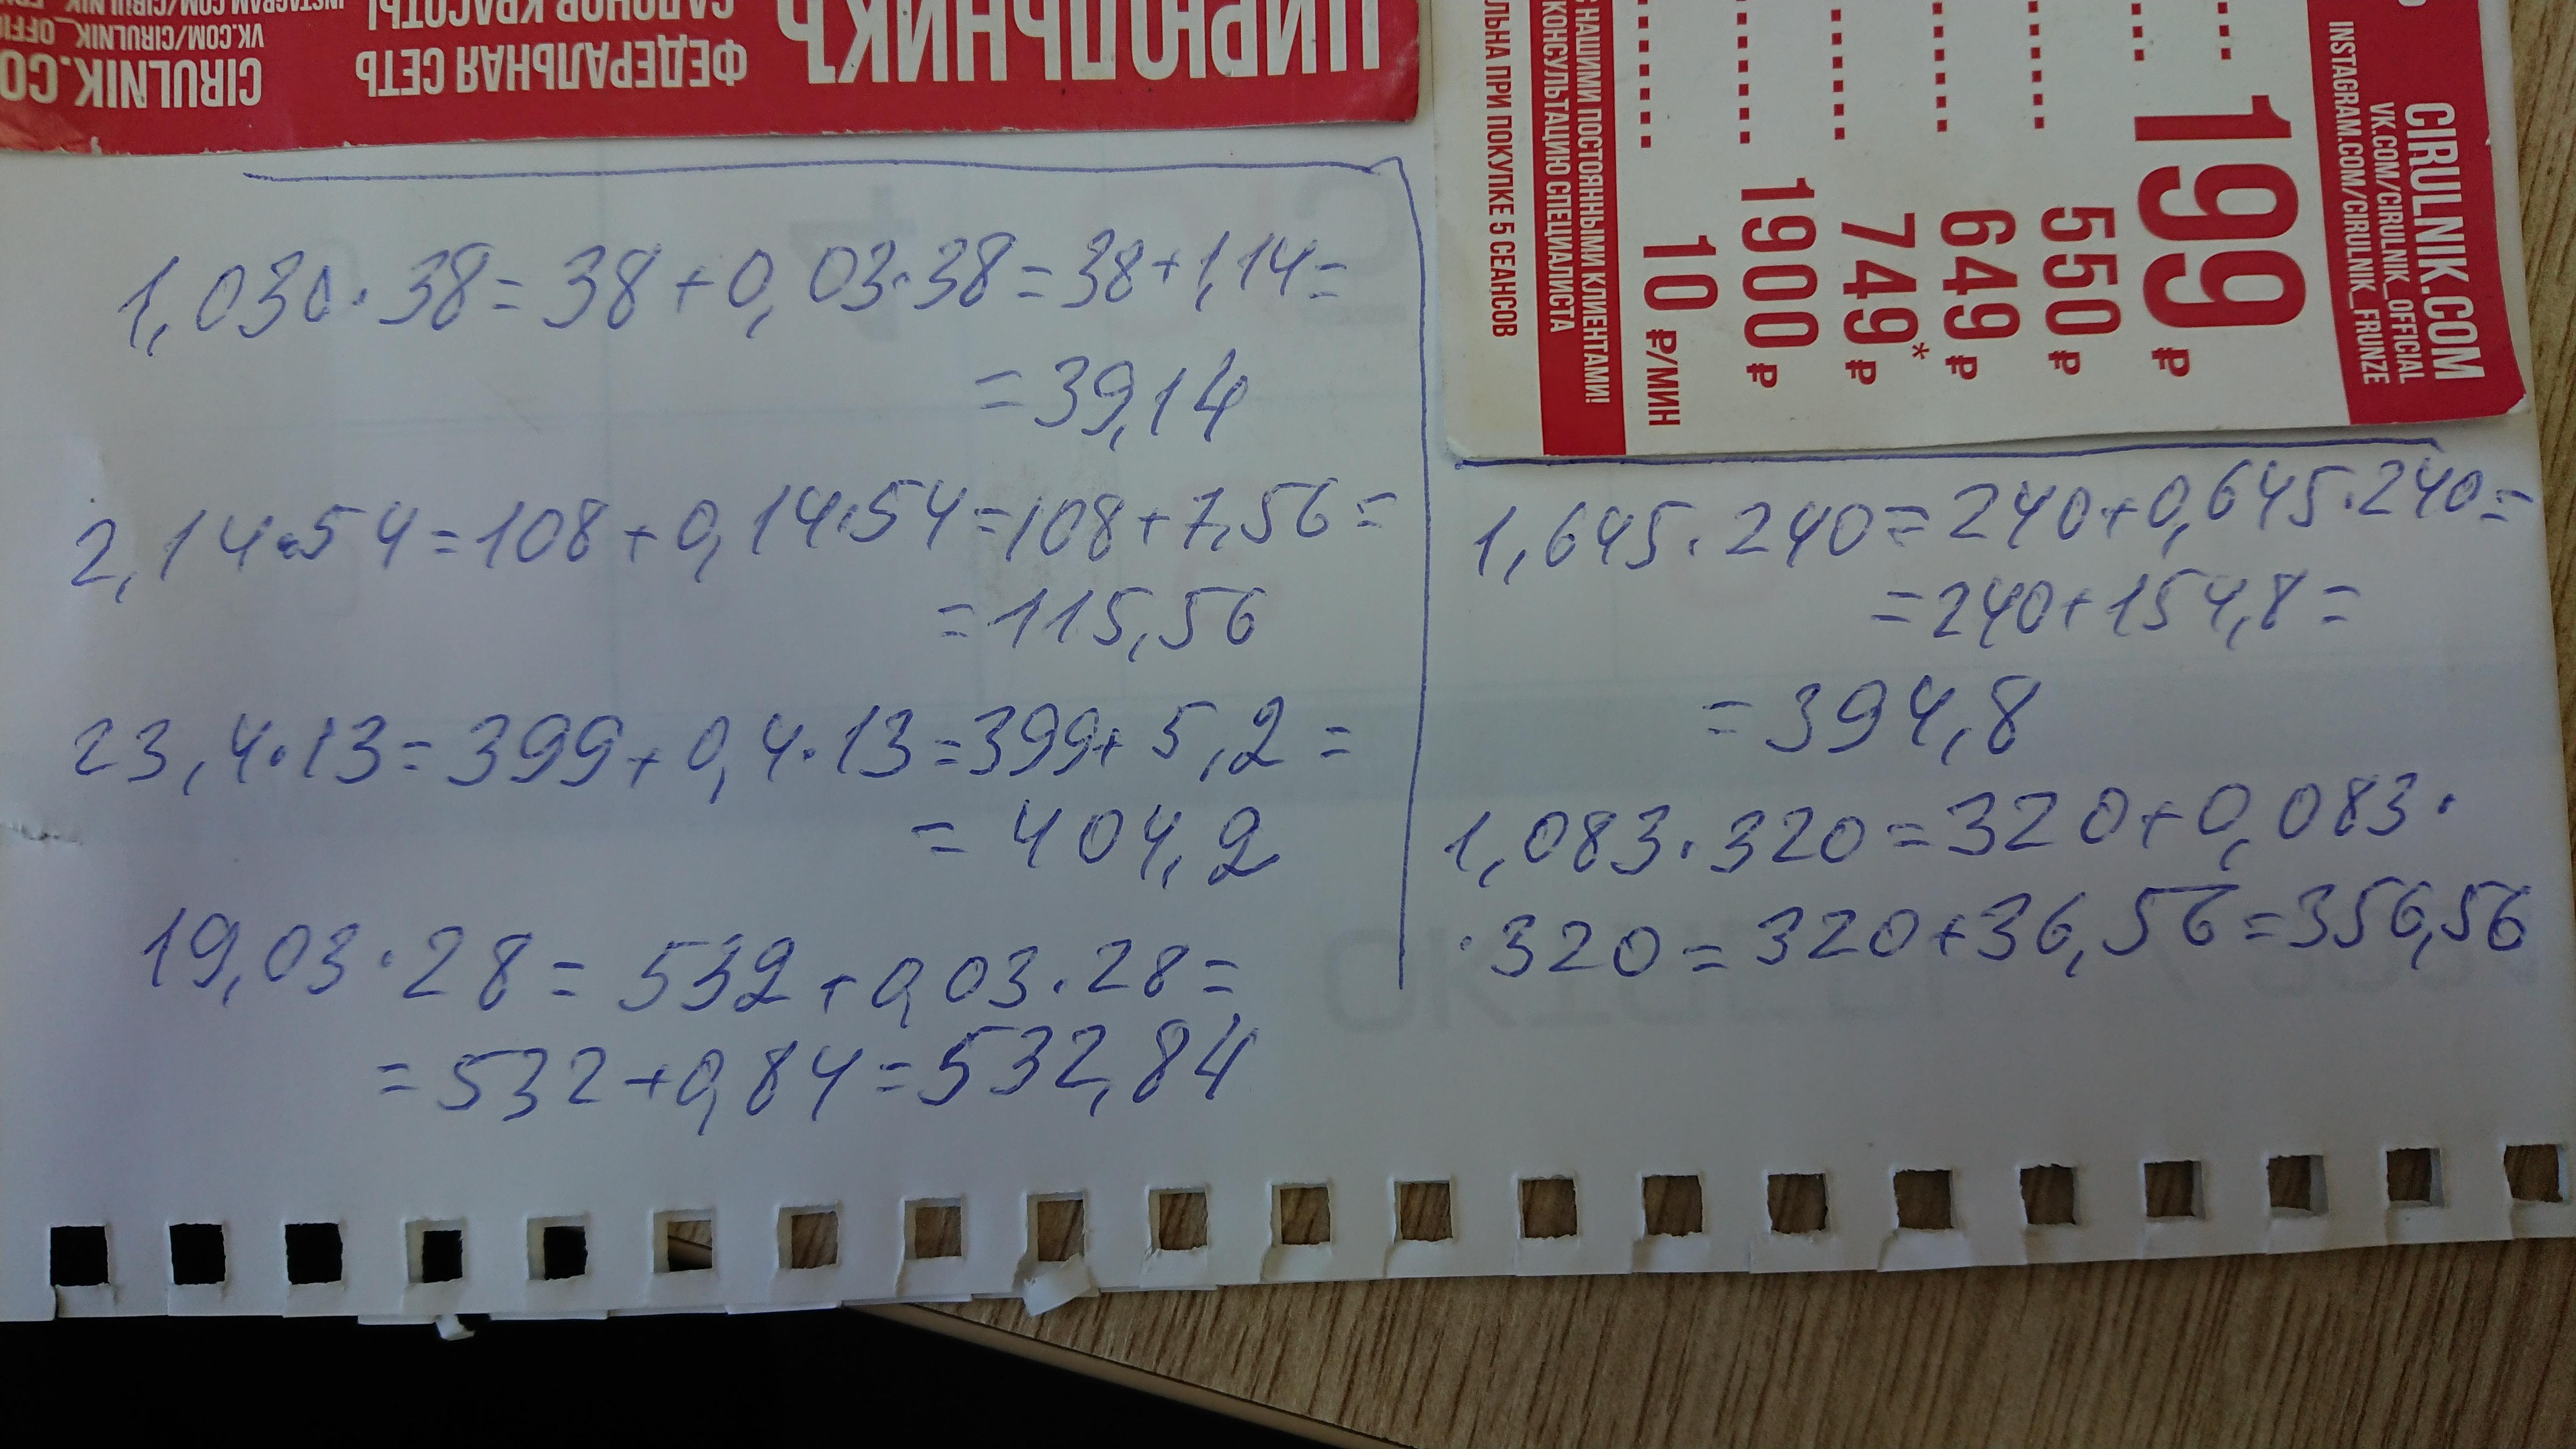 ЦИРЮЛЬНИКЪ
ФЕДЕРАЛЬНАЯ СЕТЬ
САЛОНОВ КРАСОТЫ
CIRULNIK.CO
VK.COM/CIRULNIK_OFFIC
INSTAGRAM.COM/CIRULNIK
ЛЬНА ПРИ ПОКУПКЕ 5 СЕАНСОВ
С НАШИМИ ПОСТОЯННЫМИ КЛИЕНТАМИ!
КОНСУЛЬТАЦИЮ СПЕЦИАЛИСТА
199 ₽
550 ₽
649 ₽
749* ₽
1900 ₽
10 ₽/МИН
CIRULNIK.COM
VK.COM/CIRULNIK_OFFICIAL
INSTAGRAM.COM/CIRULNIK_FRUNZE
1,030·38=38+0,03·38=38+1,14=
=39,14
2,14·54=108+0,14·54=108+7,56=
=115,56
23,4·13=399+0,4·13=399+5,2=
=404,2
19,03·28=532+0,03·28=
=532+0,84=532,84
1,645·240=240+0,645·240=
=240+154,8=
=394,8
1,083·320=320+0,083·
·320=320+36,56=356,56